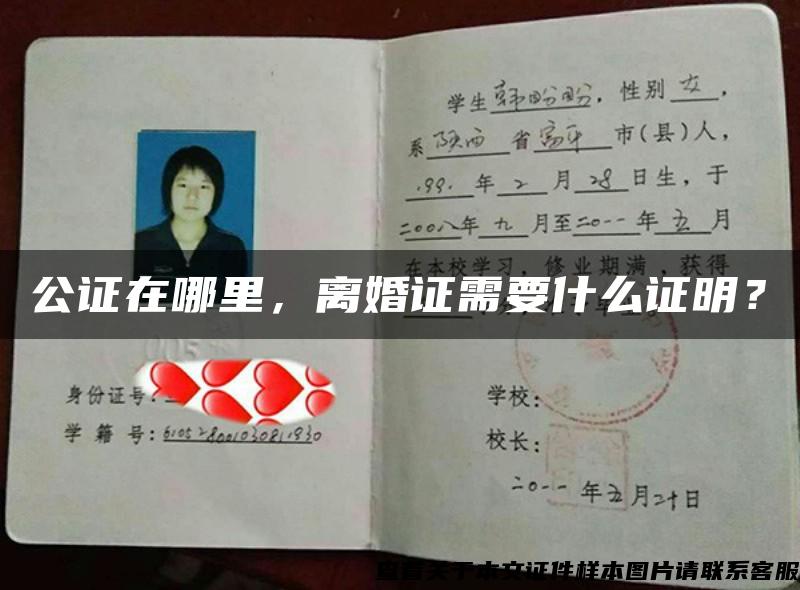 学生韩盼盼，性别女，
系陕西省富平市(县)人，
1991年2月28日生，于
二00八年九月至二0一一年五月
在本校学习，修业期满，获得
公证在哪里，离婚证需要什么证明？
005
身份证号：
学籍号：
学校：
校长：
二0一一年五月二十日
查看关于本文证件样本图片请联系客服